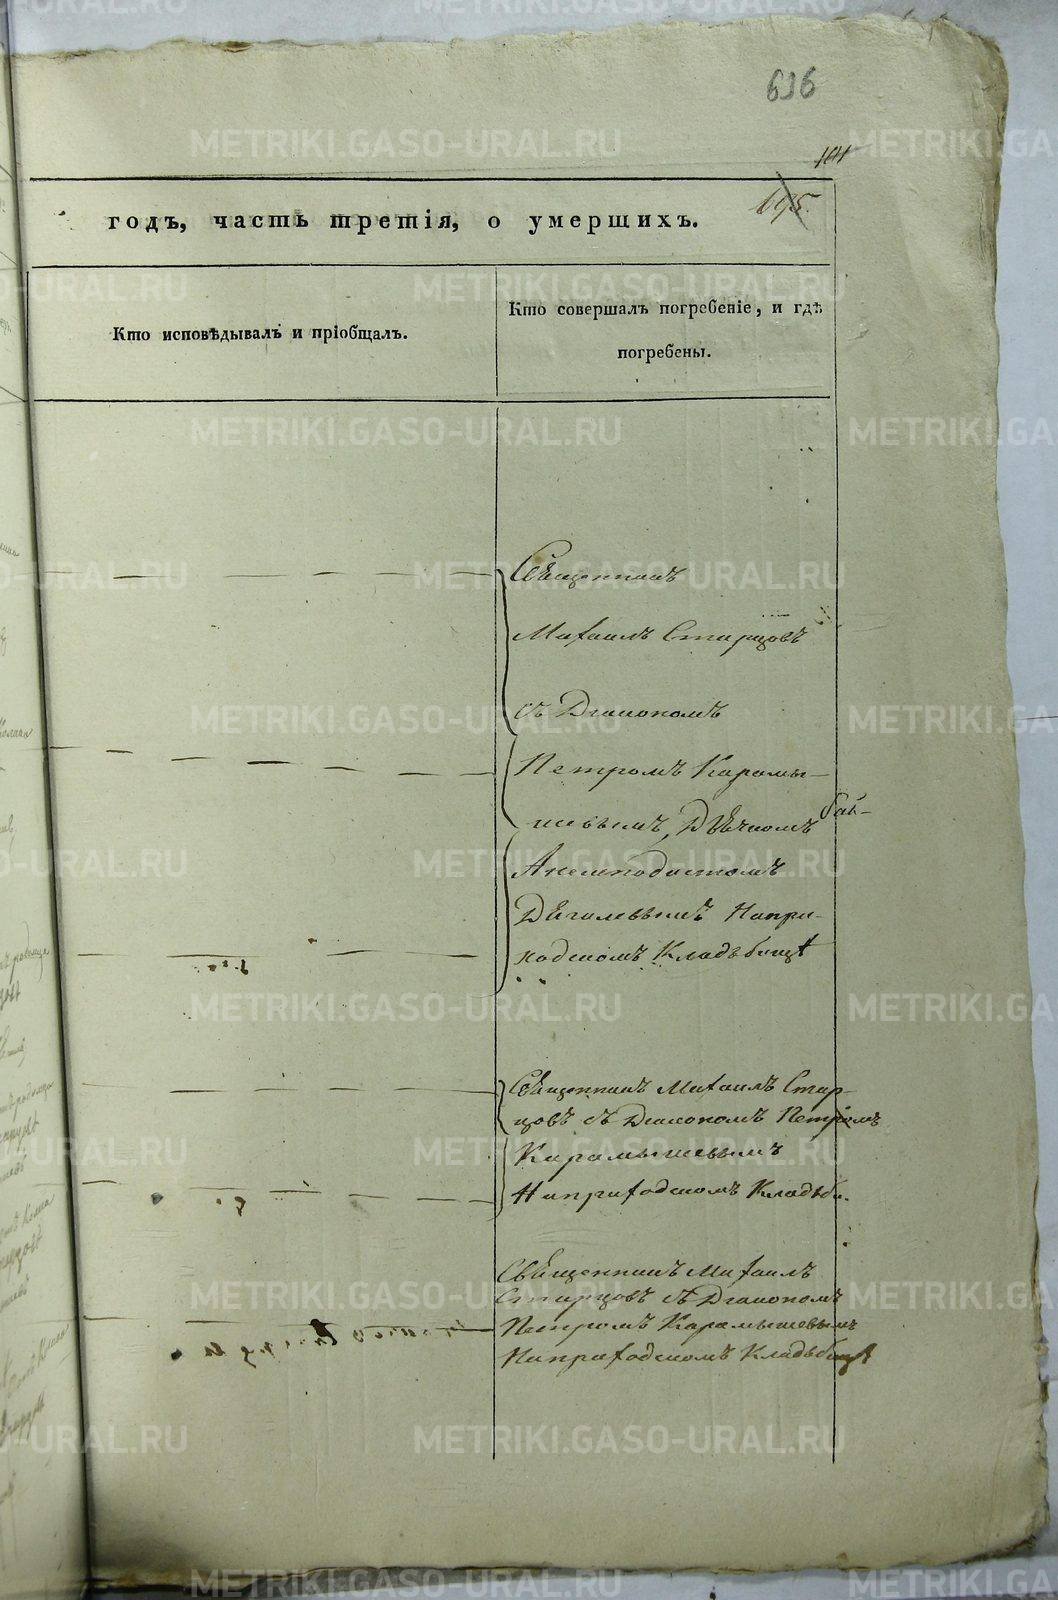 636
годъ, часть третія, о умершихъ.
695.
Кто исповѣдывалъ и пріобщалъ.
Кто совершалъ погребеніе, и гдѣ
погребены.
Священникъ
Михаилъ Старцовъ
съ Діакономъ
Петромъ Карамы-
шевымъ, Дьячкомъ
Анемподистомъ
Дѣгалевымъ Напри-
ходскомъ Кладьбищѣ
Священникъ Михаилъ Стар-
цовъ съ Діакономъ Петромъ
Карамышевымъ
Наприходскомъ Кладьби.
Священникъ Михаилъ
Старцовъ съ Діакономъ
Петромъ Карамышевымъ
Наприходскомъ Кладьбищѣ
METRIKI.GASO-URAL.RU